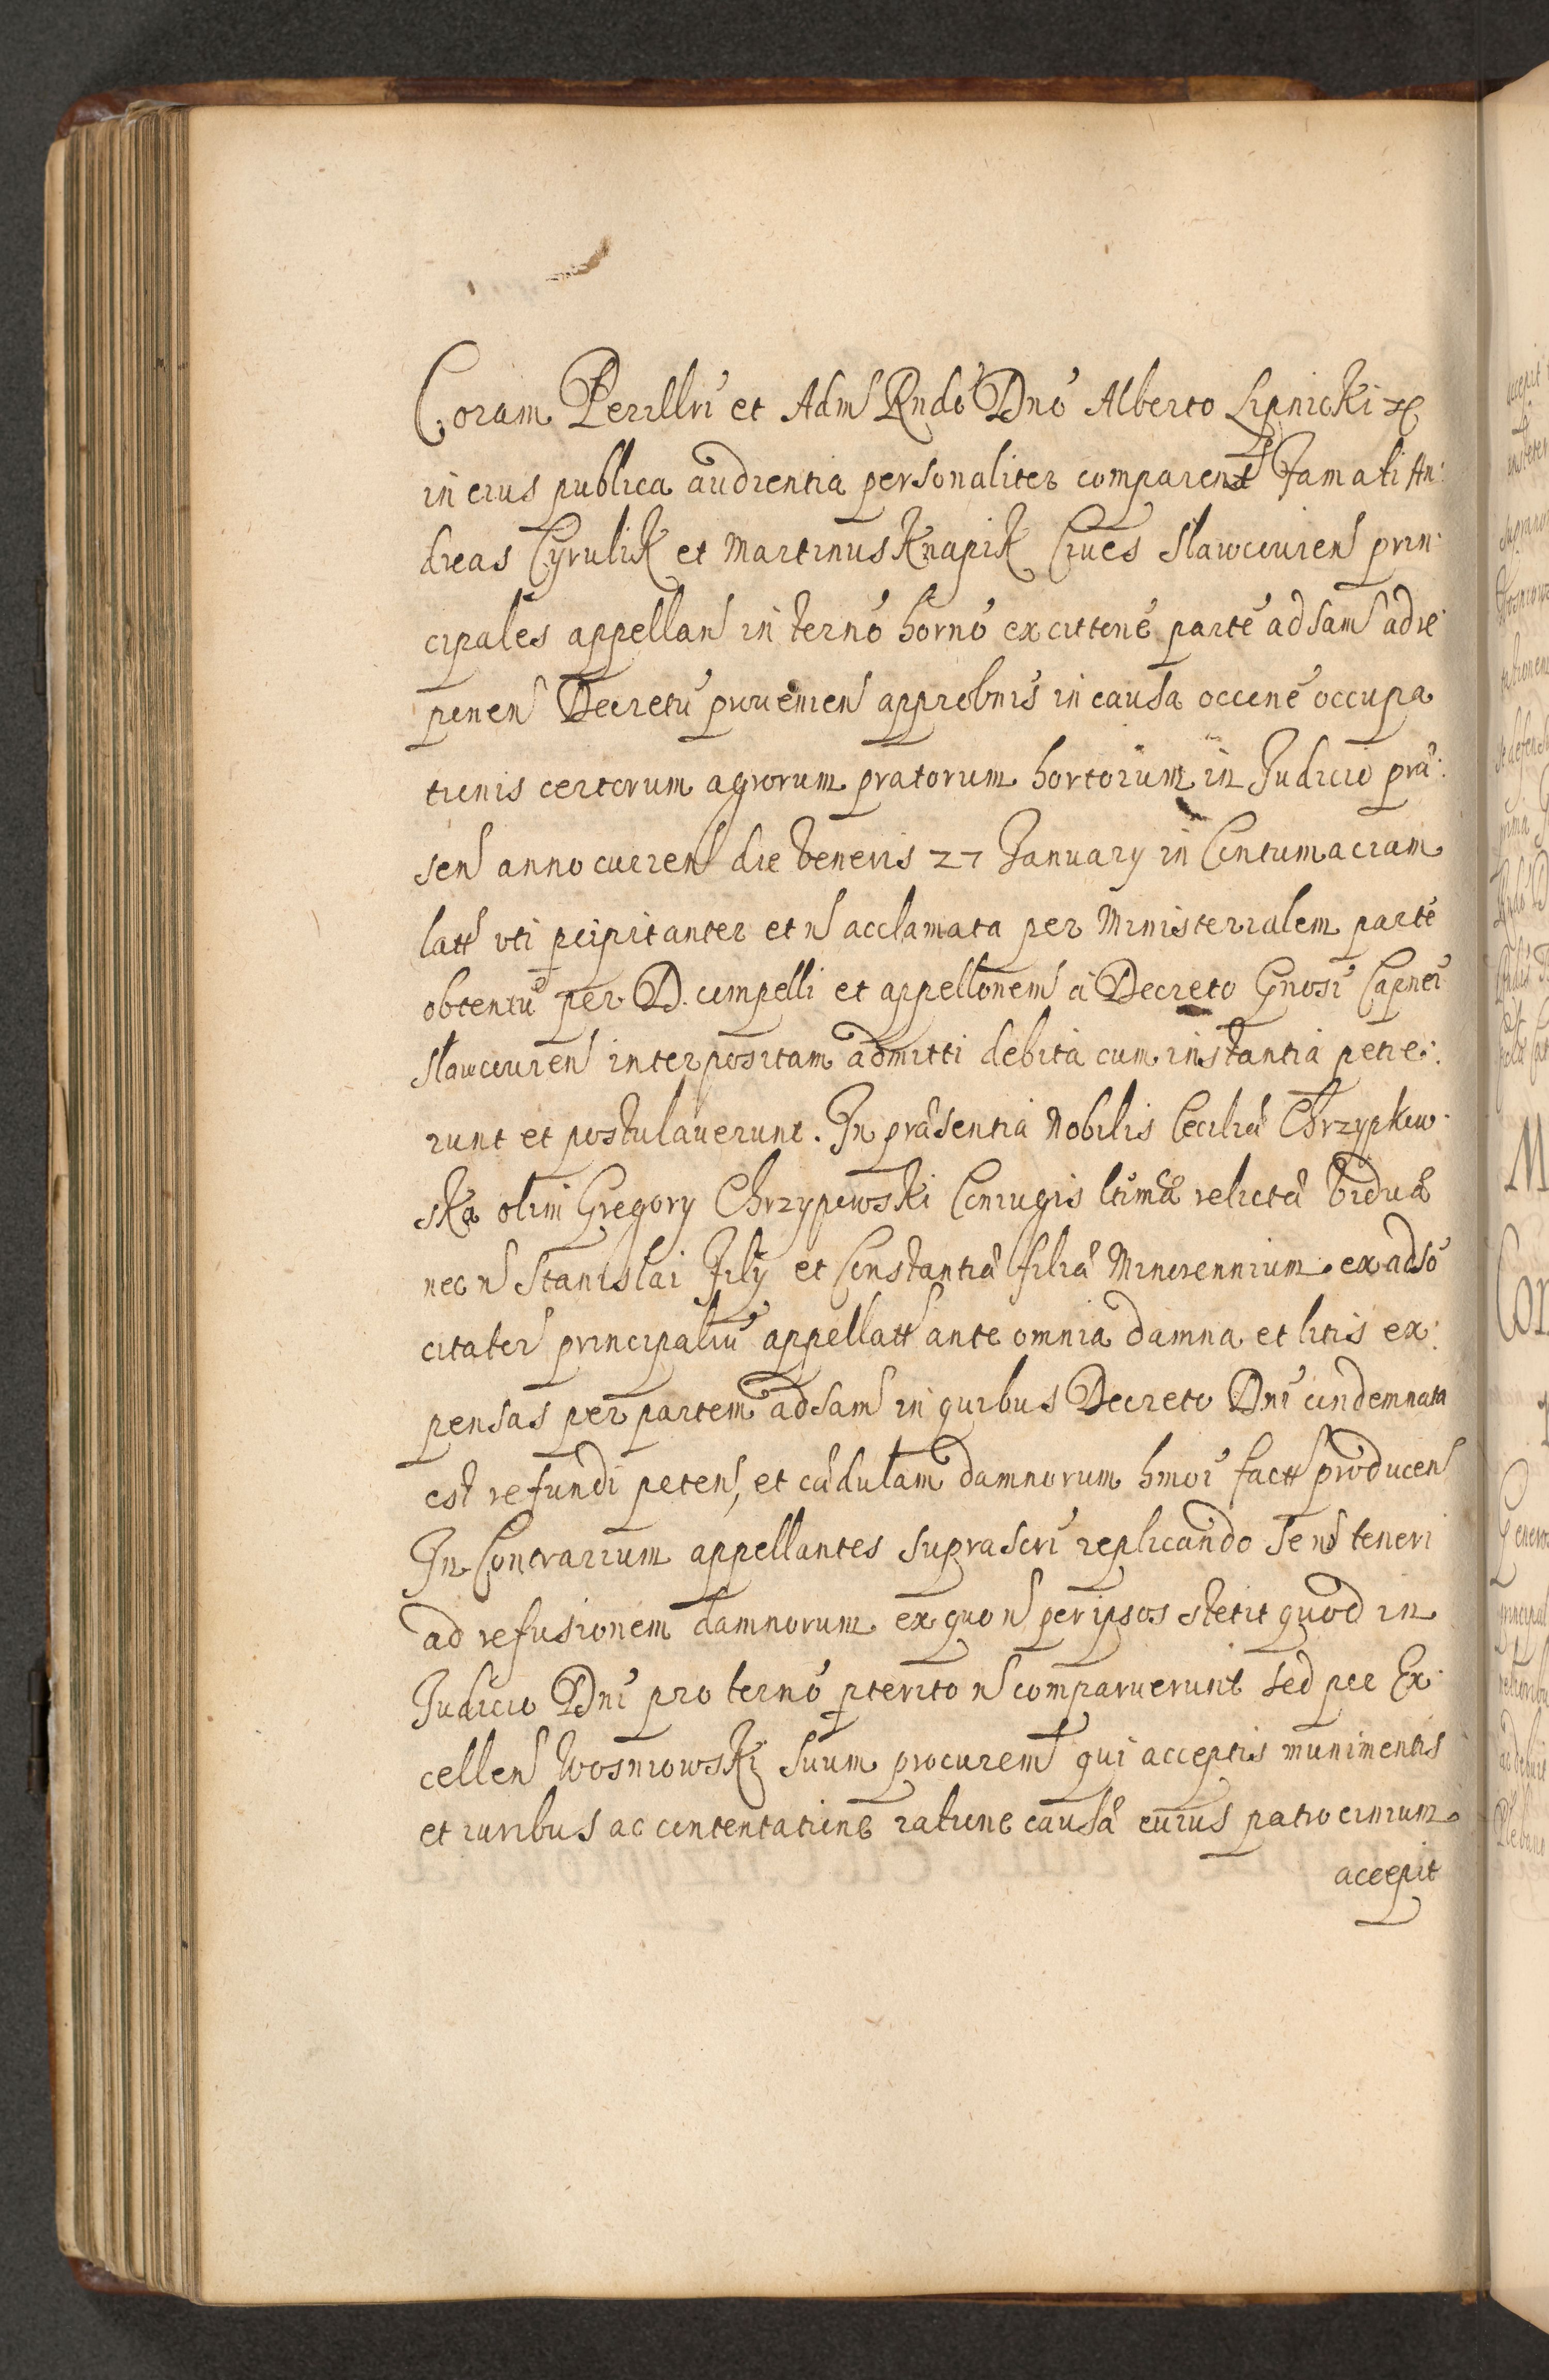 Coram Perilltri et Adm Rndo Dno Alberto Lipnicki &c
in eius publica audientia personaliter comparent Famati An:
dreas Cyrulik et Martinus Knapik Cives Slawcovien prin:
cipales appellan in termo horno ex cittone parte adsam ad re:
ponen Decretu provenien approbnis in causa occne occupa
tionis certorum agrorum pratorum hortorum in Judicio præ:
sen anno curren die Veneris 27 January in Contumaciam
latt uti pcipitanter et n acclamata per Ministerialem parte
obtentu per D. compelli et appellonem a Decreto Gnosi Capnei
Slawcovien interpositam admitti debita cum instantia petie:
runt et postulaverunt. In præsentia Nobilis Ceciliæ Chrzypkow:
ska olim Gregory Chrzypowski Coniugis ltimæ relictæ Viduæ
nec n Stanislai Fily et Constantiæ filiæ Minorennium ex adso
citator principaliu appellatt ante omnia damna et litis ex:
pensas per partem adsam in quibus Decreto Dni condemnata
est refundi peten, et cædulam damnorum hmoi factt producen
In Contrarium appellantes suprascri replicando se no teneri
ad refusionem damnorum ex quo n per ipsos stetit quod in
Judicio Dni pro termo pterito n comparuerunt sed per Ex:
cellen Wosniowski suum procurem qui acceptis munimentis
et iuribus ac contentatione ratione causæ cuius patrocinium
accepit